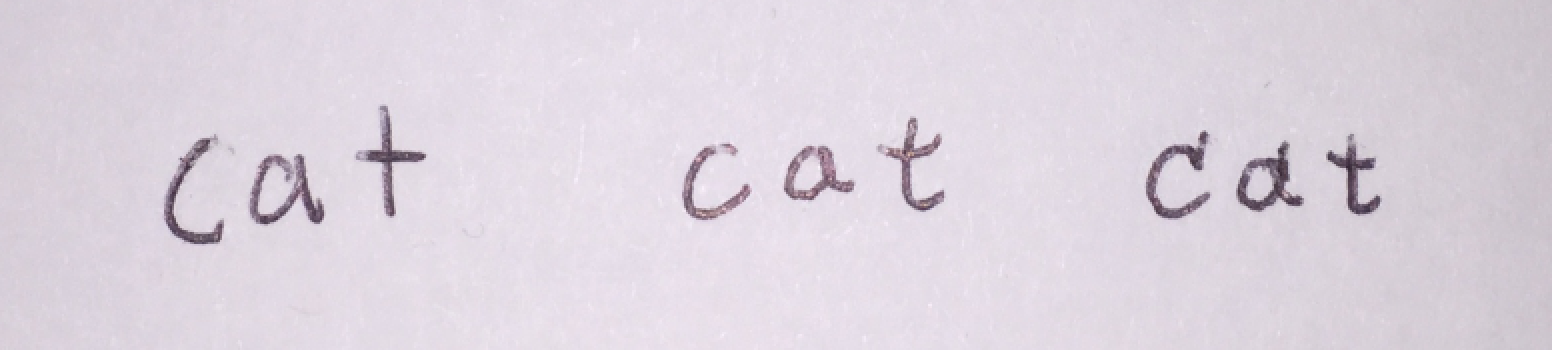 cat cat cat